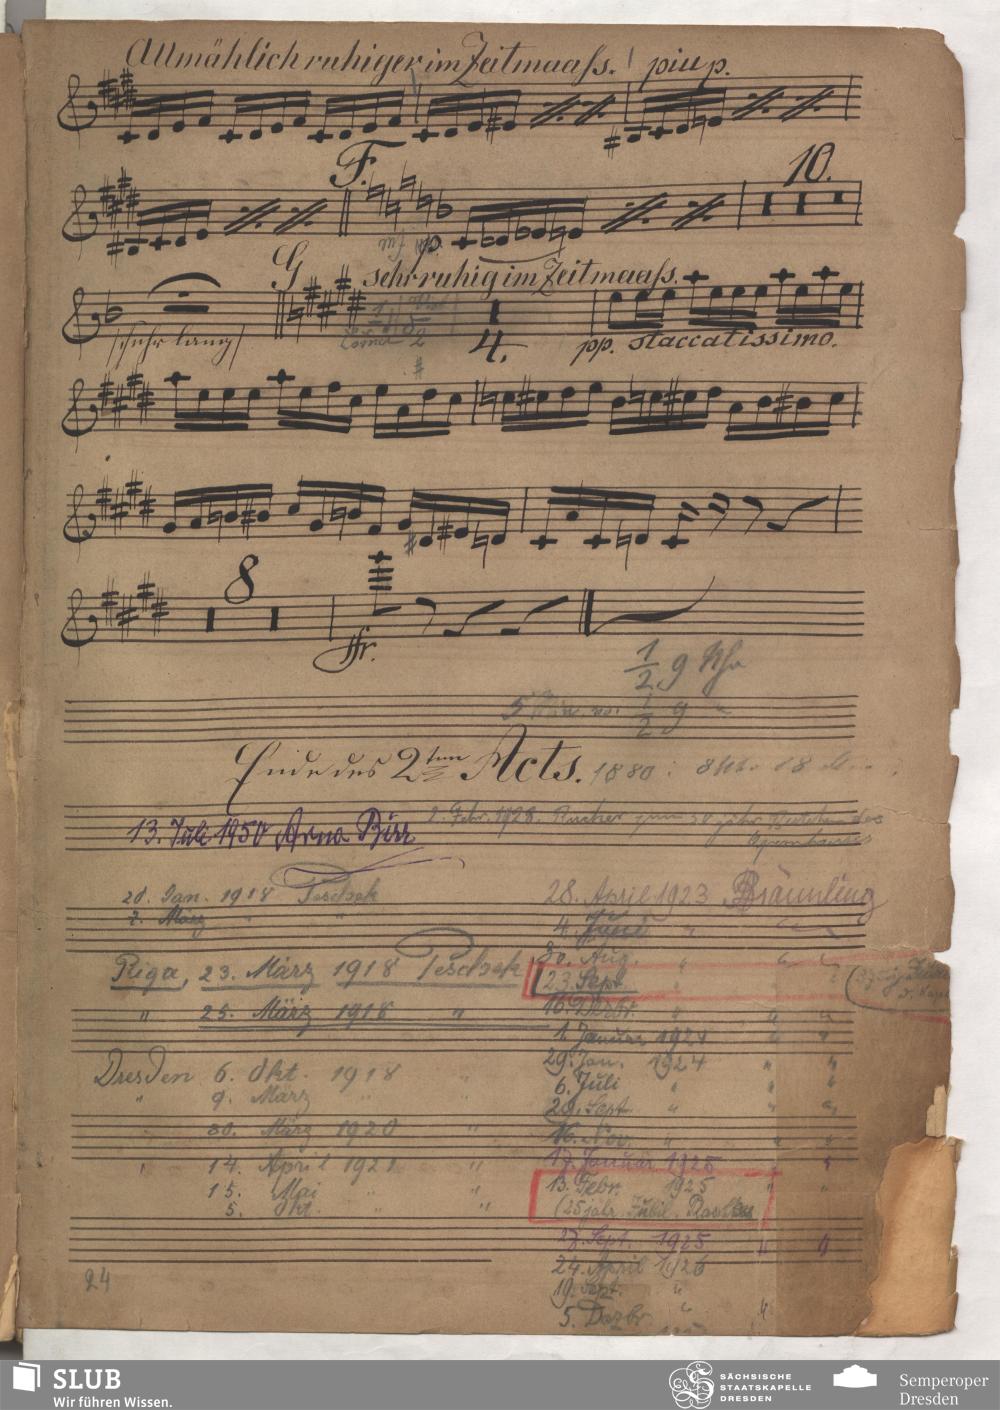 Allmählich ruhiger im Zeitmaass. piu p.
F. 10.
p.
G sehr ruhig im Zeitmaass.
(sehr lang)
4. pp. staccatissimo.
8
ffr.
1/2 9 Uhr
5 Min. vor 1/2 9 "
Ende des 2ten Acts. 1880: 8 Uhr 18 M
13. Juli 1950 Arna Birr
2. Febr. 1928.
Opernhauses
20. Jan. 1918 Peschek
7. März " "
Riga, 23. März 1918 Peschek
" 25. März 1918 "
Dresden 6. Okt. 1918 "
" 9. März " "
30. März 1920
" 14. April 1921 "
15. Mai " "
5. Okt. " "
24
28. April 1923 Bräunling
4. Juni " "
30. Aug. " " "
23. Sept. "
16. Dezbr. " " "
1. Januar 1924 " "
29. Jan. 1924 " "
6. Juli " " "
20. Sept. " " "
16. Nov. " " "
17. Januar 1925 " "
13. Febr. 1925 " "
(25 jähr. Jubil.
27. Sept. 1925 " "
24. April 1926
19. Sept. "
5. Dezbr. " "
SLUB
Wir führen Wissen.
SÄCHSISCHE
STAATSKAPELLE
DRESDEN
Semperoper
Dresden